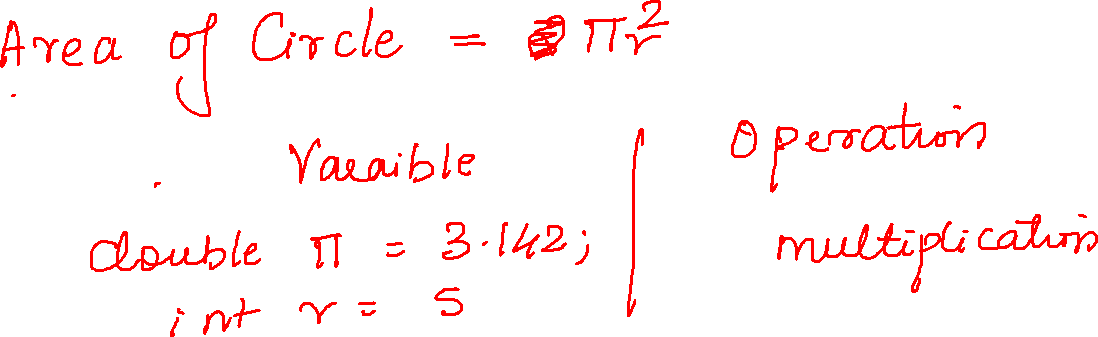 Area of Circle = πr²
Varaible
double π = 3.142;
int r = 5
Operation
multiplication